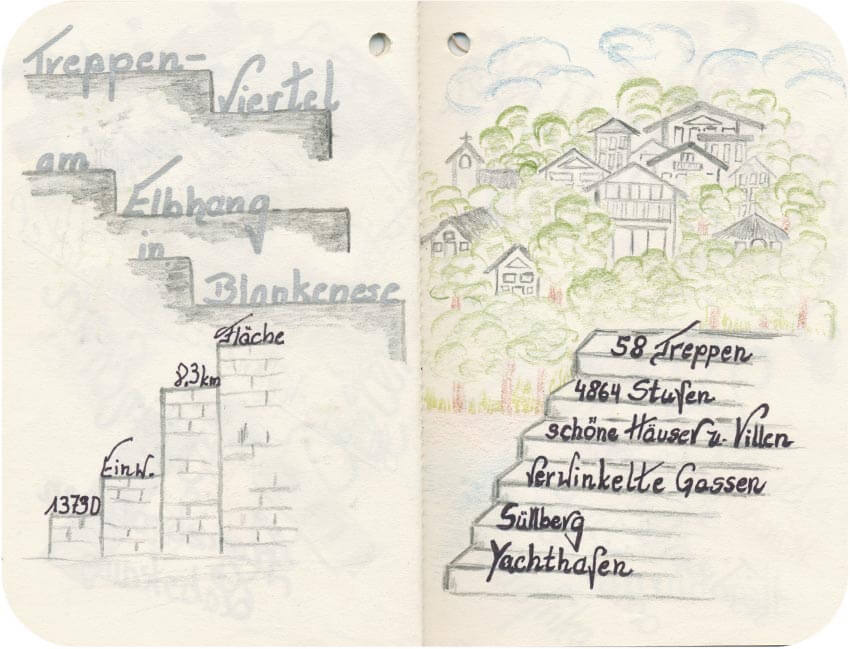 Treppen-
Viertel
am
Elbhang
in
Blankenese
Fläche
8,3 km
Einw.
13790
58 Treppen
4864 Stufen
schöne Häuser u. Villen
verwinkelte Gassen
Süllberg
Yachthafen